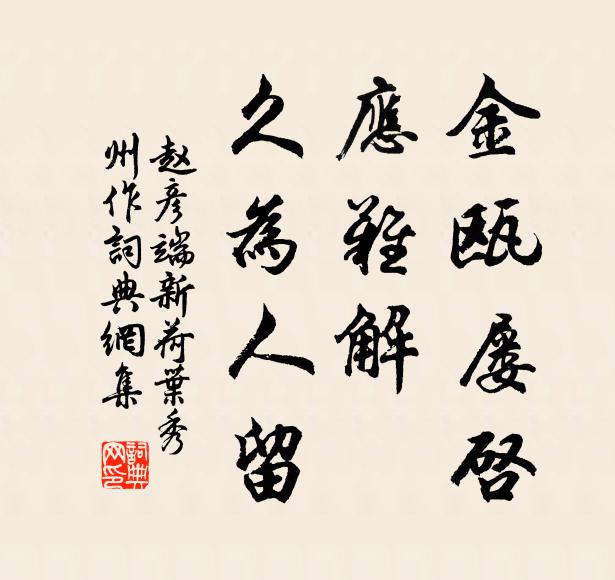 金甌屢啓
應難解
久為人留
赵彦端新荷葉秀
州作詞典網集
詞典
网印